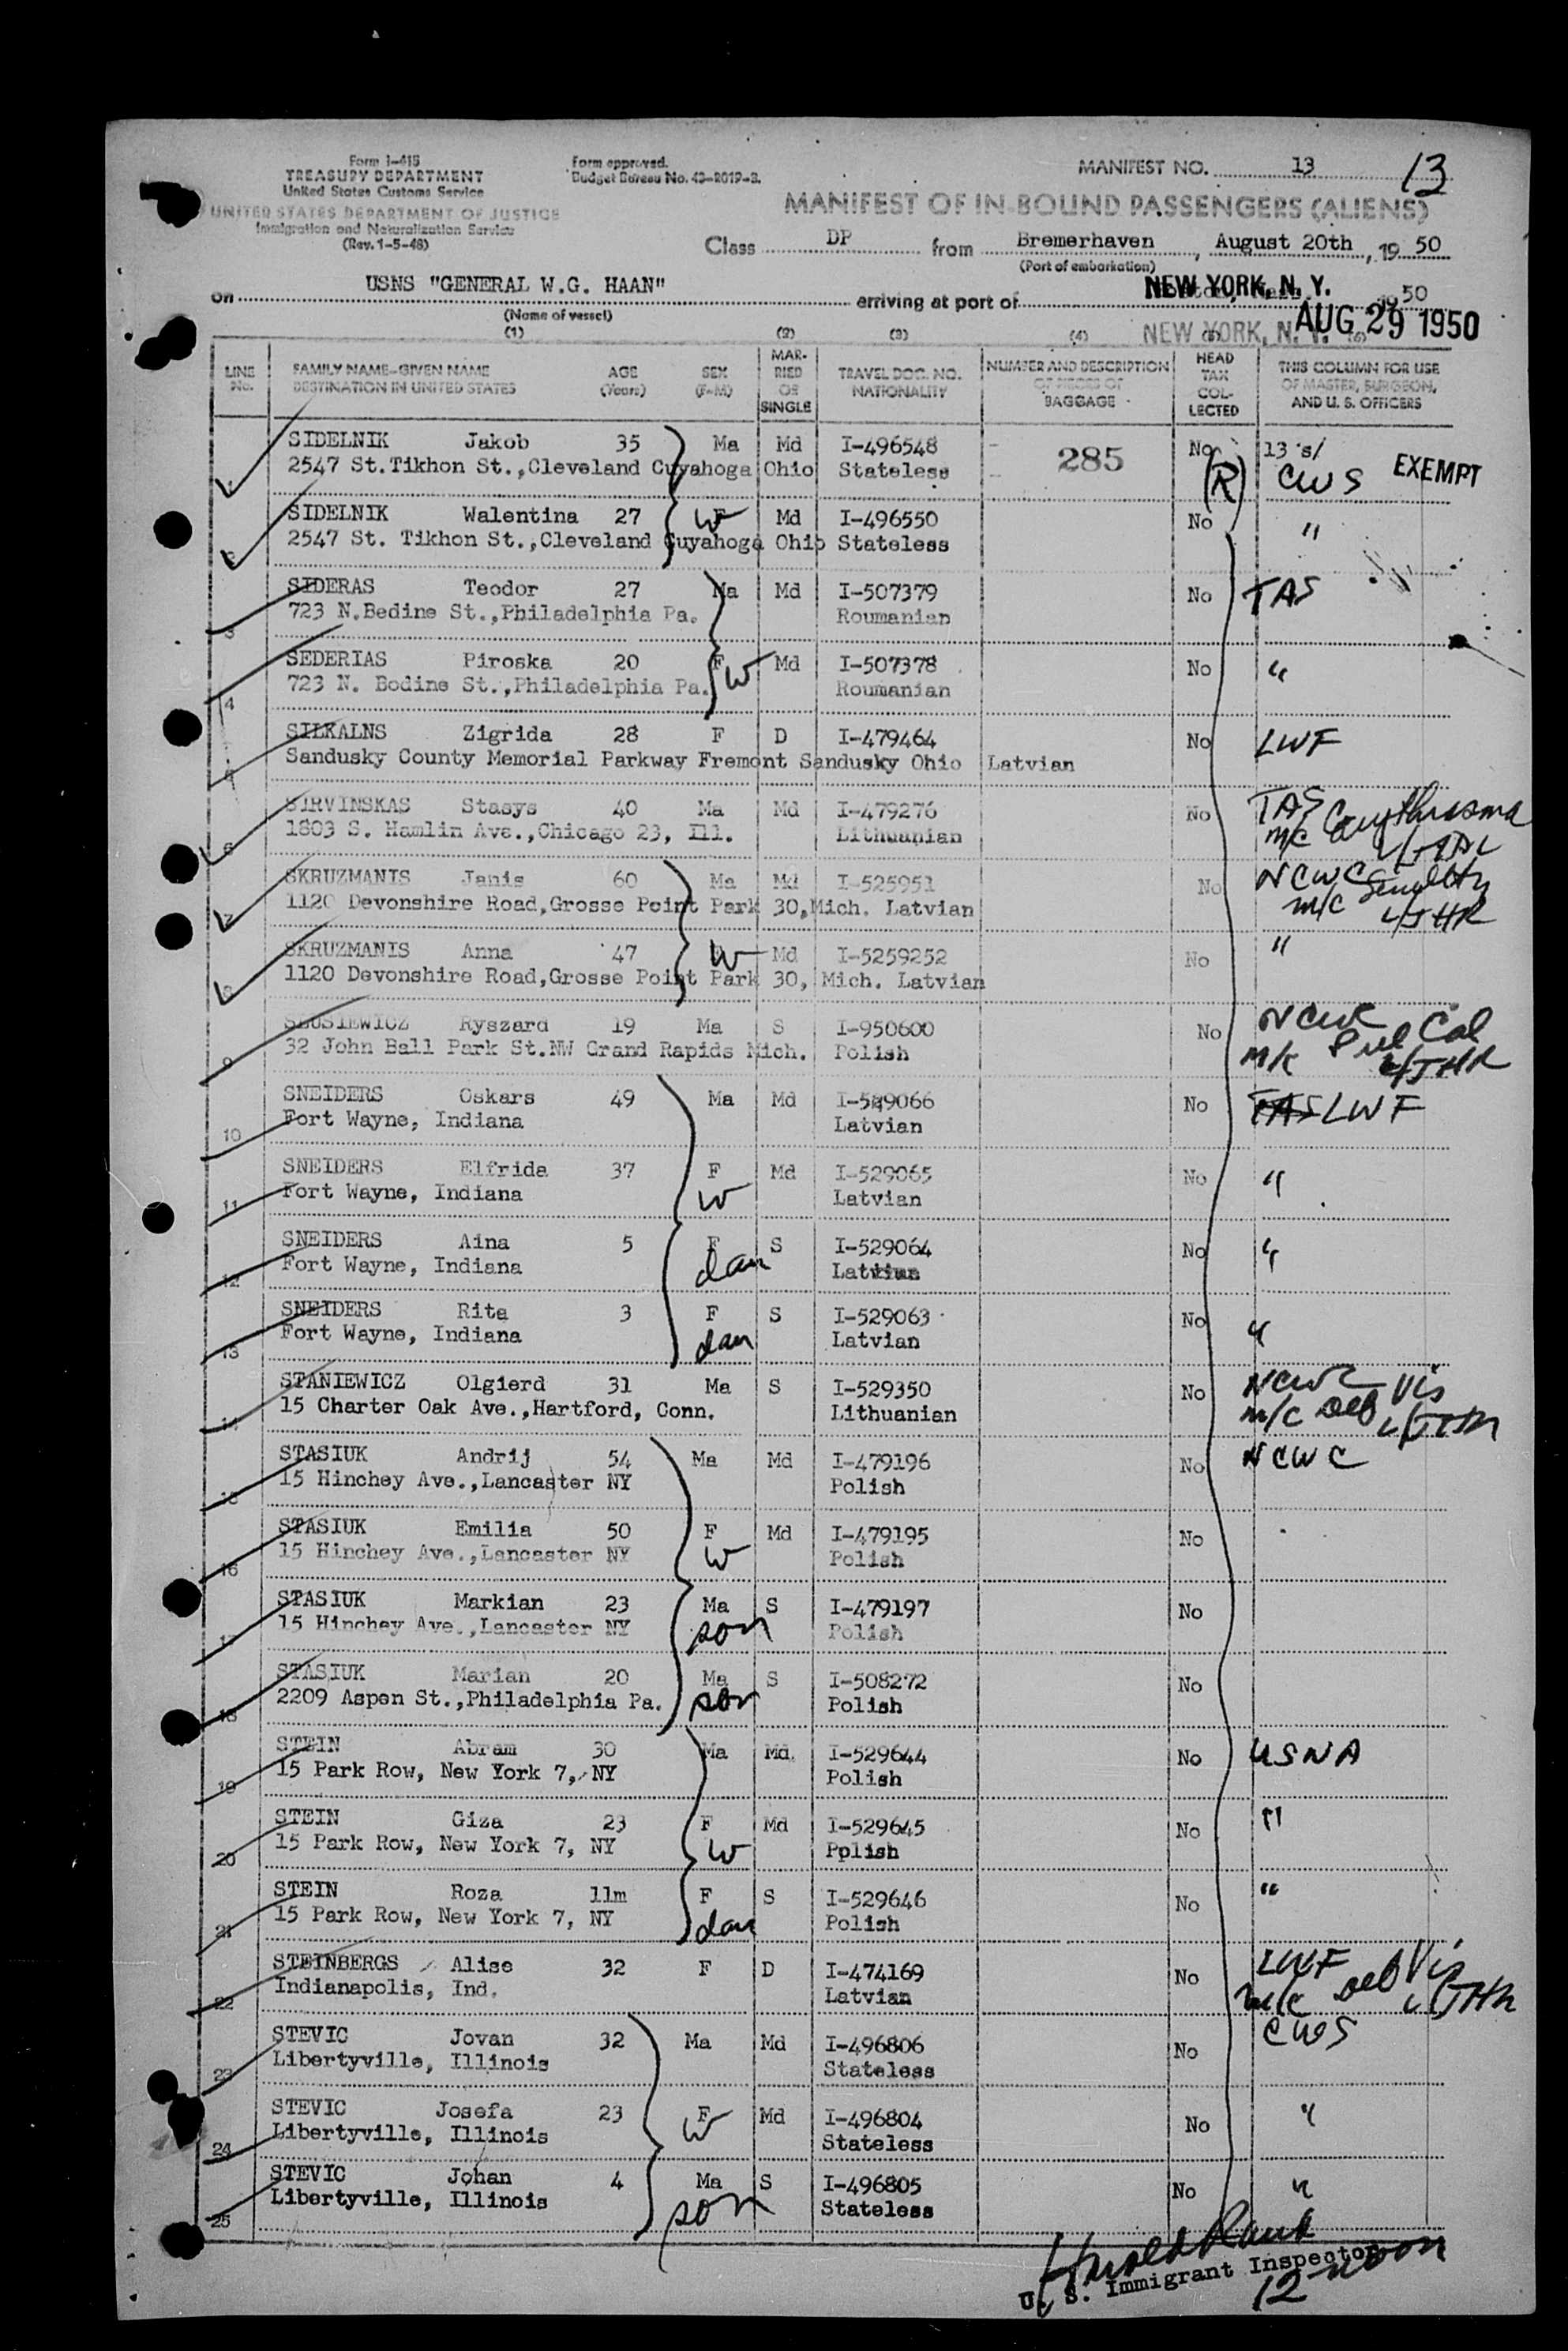 Form I-415
TREASURY DEPARTMENT
United States Customs Service
UNITED STATES DEPARTMENT OF JUSTICE
Immigration and Naturalization Service
(Rev. 1-5-48)
Form approved.
Budget Bureau No. 43-R019-3.
MANIFEST NO. 13 13
MANIFEST OF IN-BOUND PASSENGERS (ALIENS)
Class DP from Bremerhaven, August 20th, 19 50
(Port of embarkation)
on USNS "GENERAL W.G. HAAN" arriving at port of NEW YORK, N. Y. 1950
(Name of vessel)
NEW YORK, N. Y. AUG 29 1950
(1) (2) (3) (4) (5) (6)
LINE No. FAMILY NAME-GIVEN NAME DESTINATION IN UNITED STATES AGE (Years) SEX (F-M) MARRIED OR SINGLE TRAVEL DOC. NO. NATIONALITY NUMBER AND DESCRIPTION OF PIECES OF BAGGAGE HEAD TAX COLLECTED THIS COLUMN FOR USE OF MASTER, SURGEON, AND U. S. OFFICERS
1 SIDELNIK Jakob 35 Ma Md I-496548 285 No (R) 13 s/ CWS EXEMPT
2547 St.Tikhon St.,Cleveland Cuyahoga Ohio Stateless
2 SIDELNIK Walentina 27 F W Md I-496550 No "
2547 St. Tikhon St.,Cleveland Cuyahoga Ohio Stateless
3 SIDERAS Teodor 27 Ma Md I-507379 No TAS
723 N.Bedine St.,Philadelphia Pa. Roumanian
4 SEDERIAS Piroska 20 F W Md I-507378 No "
723 N. Bodine St.,Philadelphia Pa. Roumanian
5 SILKALNS Zigrida 28 F D I-479464 No LWF
Sandusky County Memorial Parkway Fremont Sandusky Ohio Latvian
6 SIRVINSKAS Stasys 40 Ma Md I-479276 No TAS
1803 S. Hamlin Ave.,Chicago 23, Ill. Lithuanian m/c Erythrasma
7 SKRUZMANIS Janis 60 Ma Md I-525951 No NCWC
1120 Devonshire Road,Grosse Point Park 30,Mich. Latvian m/c Senility L/JHR
8 SKRUZMANIS Anna 47 W Md I-5259252 No "
1120 Devonshire Road,Grosse Point Park 30, Mich. Latvian
9 SLUSIEWICZ Ryszard 19 Ma S I-950600 No NCWC
32 John Ball Park St.NW Grand Rapids Mich. Polish m/c Pul Cal L/JHR
10 SNEIDERS Oskars 49 Ma Md I-529066 No TAS LWF
Fort Wayne, Indiana Latvian
11 SNEIDERS Elfrida 37 F Md I-529065 No "
Fort Wayne, Indiana W Latvian
12 SNEIDERS Aina 5 F S I-529064 No "
Fort Wayne, Indiana dau Latvian
13 SNEIDERS Rita 3 F S I-529063 No "
Fort Wayne, Indiana dau Latvian
14 STANIEWICZ Olgierd 31 Ma S I-529350 No NCWC
15 Charter Oak Ave.,Hartford, Conn. Lithuanian m/c Def Vis L/JHR
15 STASIUK Andrij 54 Ma Md I-479196 No NCWC
15 Hinchey Ave.,Lancaster NY Polish
16 STASIUK Emilia 50 F Md I-479195 No
15 Hinchey Ave.,Lancaster NY W Polish
17 STASIUK Markian 23 Ma S I-479197 No
15 Hinchey Ave.,Lancaster NY son Polish
18 STASIUK Marian 20 Ma S I-508272 No
2209 Aspen St.,Philadelphia Pa. son Polish
19 STEIN Abram 30 Ma Md. I-529644 No USNA
15 Park Row, New York 7, NY Polish
20 STEIN Giza 23 F Md I-529645 No "
15 Park Row, New York 7, NY W Pplish
21 STEIN Roza 11m F S I-529646 No "
15 Park Row, New York 7, NY dau Polish
22 STEINBERGS Alise 32 F D I-474169 No LWF
Indianapolis, Ind. Latvian m/c Def Vis L/JHR
23 STEVIC Jovan 32 Ma Md I-496806 No CWS
Libertyville, Illinois Stateless
24 STEVIC Josefa 23 F Md I-496804 No "
Libertyville, Illinois W Stateless
25 STEVIC Johan 4 Ma S I-496805 No "
Libertyville, Illinois son Stateless
U. S. Immigrant Inspector
12 noon